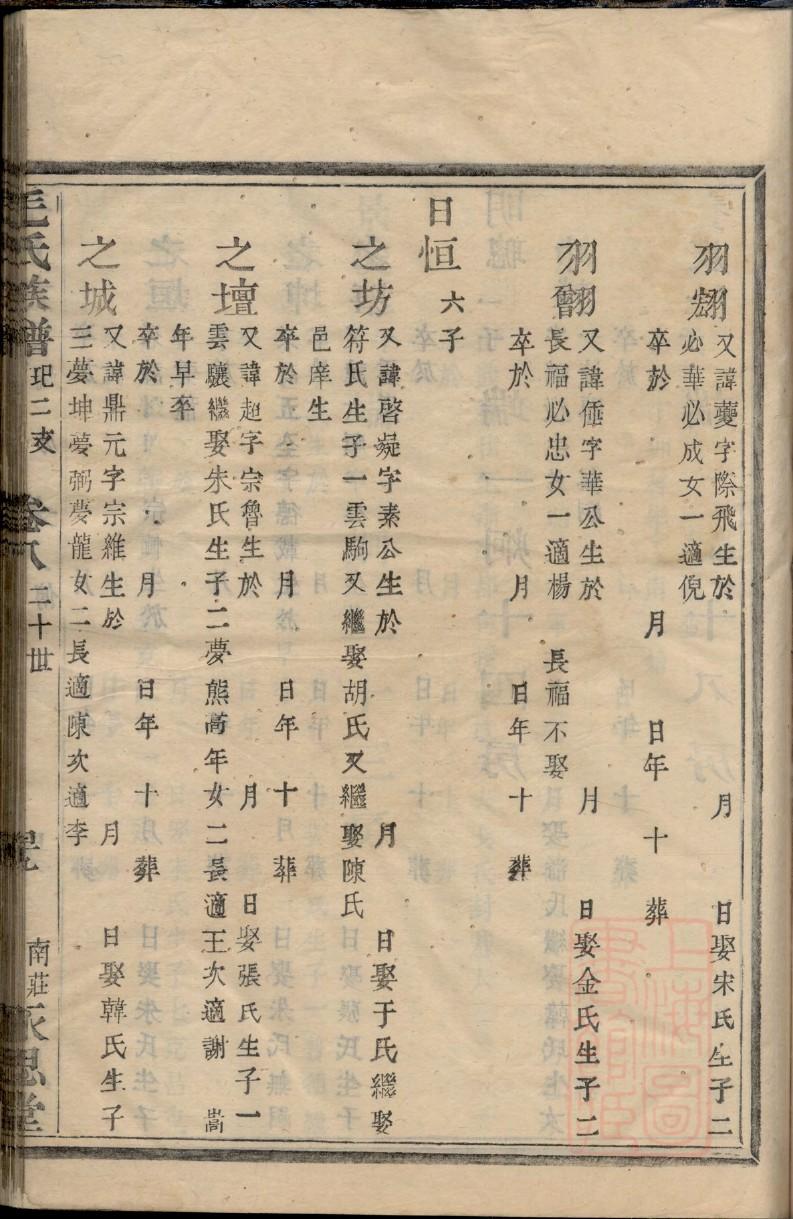 羽翃 又諱蘷字際飛生於 月 日娶宋氏生子二
必華必成女一適倪
卒於 月 日年 十 葬
羽翿 又諱倕字華公生於 月 日娶金氏生子二
長福必忠女一適楊 長福不娶
卒於 月 日年 十 葬
日恒 六子
之坊 又諱啓凝字素公生於 月 日娶于氏繼娶
符氏生子一雲駒又繼娶胡氏又繼娶陳氏
邑庠生
卒於 月 日年 十 葬
之壇 又諱超字宗魯生於 月 日娶張氏生子一
雲驤繼娶朱氏生子二夢熊嵩年女二長適王次適謝 嵩
年早卒
卒於 月 日年 十 葬
之城 又諱鼎元字宗維生於 月 日娶韓氏生子
三夢坤夢弼夢龍女二長適陳次適李
毛氏族譜 玘二支 卷八 二十世 南莊永思堂
上海圖書館藏